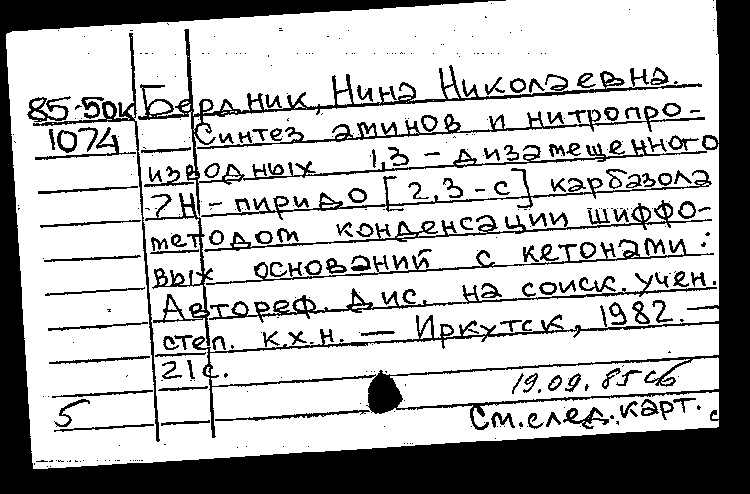 85-50к Бердник, Нина Николаевна.
1074 Синтез аминов и нитропро-
изводных 1,3 - дизамещенного
7Н - пиридо [2,3-с] карбазола
методом конденсации шиффо-
вых оснований с кетонами:
Автореф. дис. на соиск. учен.
степ. к.х.н. — Иркутск, 1982. —
21с.
19.09.85 сб
5 См. след. карт.